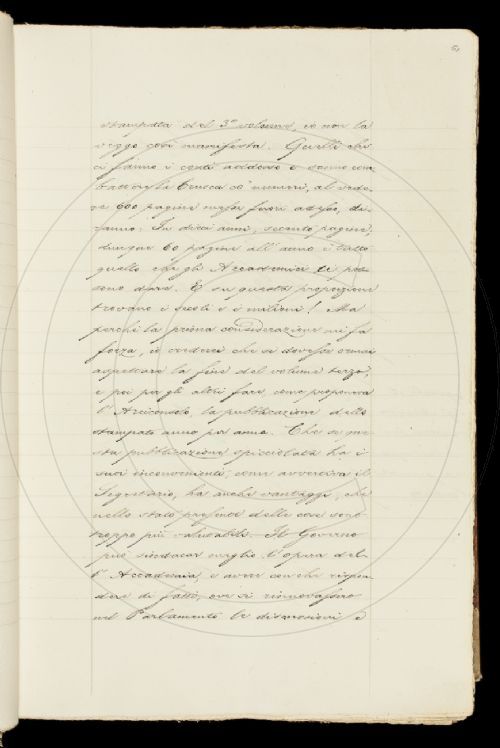 stampata del 3º volume, io non la
veggo così manifesta. Quelli che
ci fanno i conti addosso e sanno com
battergli Crusca co' numeri, al vede-
re 600 pagine messe fuori adesso, di-
ranno: In dieci anni, secento pagine;
dunque 60 pagine all'anno è tutto
quello che gli Accademici ti pos-
sono dare. E su questa proporzione
trovano i secoli e i milioni! Ma
perchè la prima considerazione mi fa
forza, io crederei che si dovesse ormai
aspettare la fine del volume terzo,
e poi per gli altri fare come proponeva
l'Arciconsolo, la pubblicazione dello
stampato anno per anno. Che se que-
sta pubblicazione spicciolata ha i
suoi inconvenienti, come avvertiva il
Segretario, ha anche vantaggi, che
nello stato presente delle cose son
troppo più valutabili. Il Governo
può sindacar meglio l'opera del-
l'Accademia, e avere con che rispon
dere di fatto, ove si rinnovassero
nel Parlamento le discussioni e